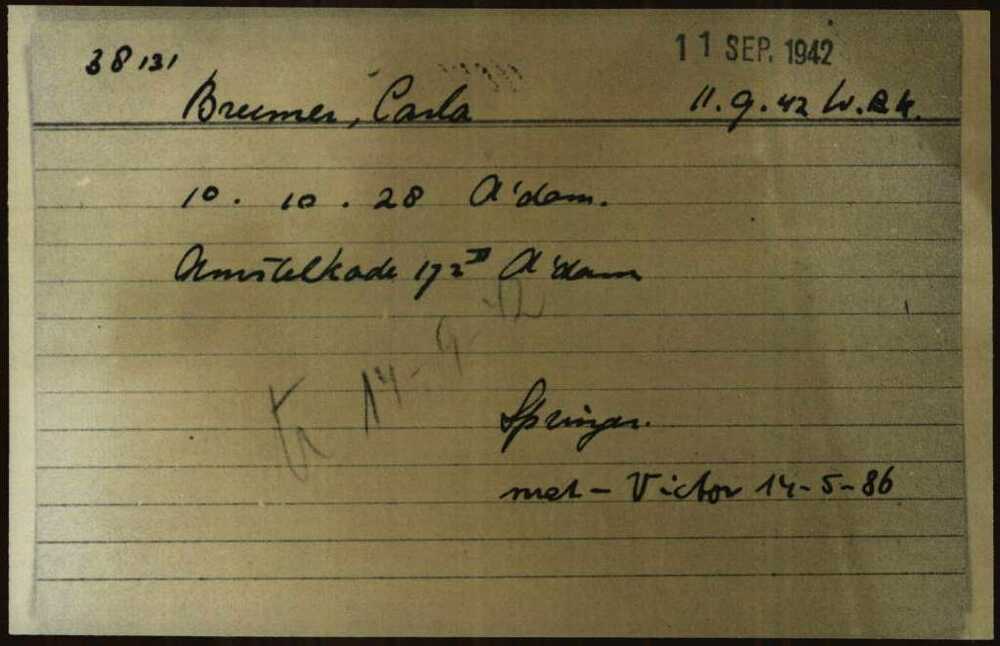 38131
11 SEP. 1942
Breemer, Carla
11.9.42 W.B.K.
10. 10. 28 A'dam.
Amstelkade 172 II A'dam
tr 14-9-42
Springer.
met - Victor 14-5-86